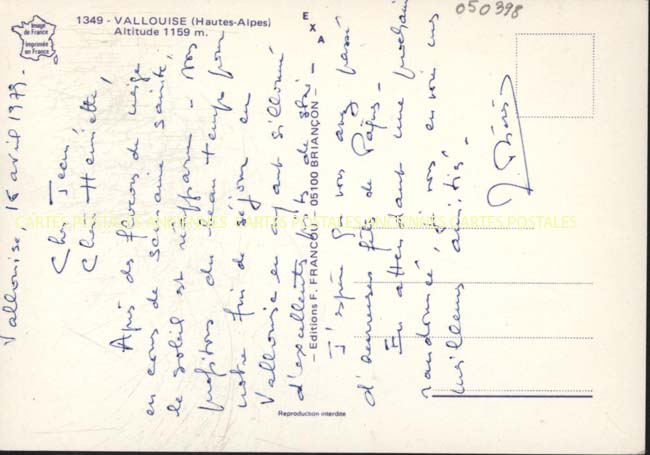 Image
de France
Imprimée
en France
1349 - VALLOUISE (Hautes-Alpes)
Altitude 1159 m.
EXA
050398
- Editions F. FRANCOU - 05100 BRIANÇON -
Reproduction interdite
CARTES POSTALES ANCIENNES CARTES POSTALES ANCIENNES CARTES POSTALES
Vallouise 16 avril 1979.
Cher Jean,
Chère Henriette,
Après des flocons de neige
en cours de semaine sainte,
le soleil est réapparu - Nous
profitons du beau temps pour
notre fin de séjour en
Vallouise en ayant sillonné
d'excellentes pistes de ski -
J'espère que vous avez passé
d'heureuses fêtes de Pâques -
En attendant une prochaine
randonnée je vous envoie mes
meilleures amitiés